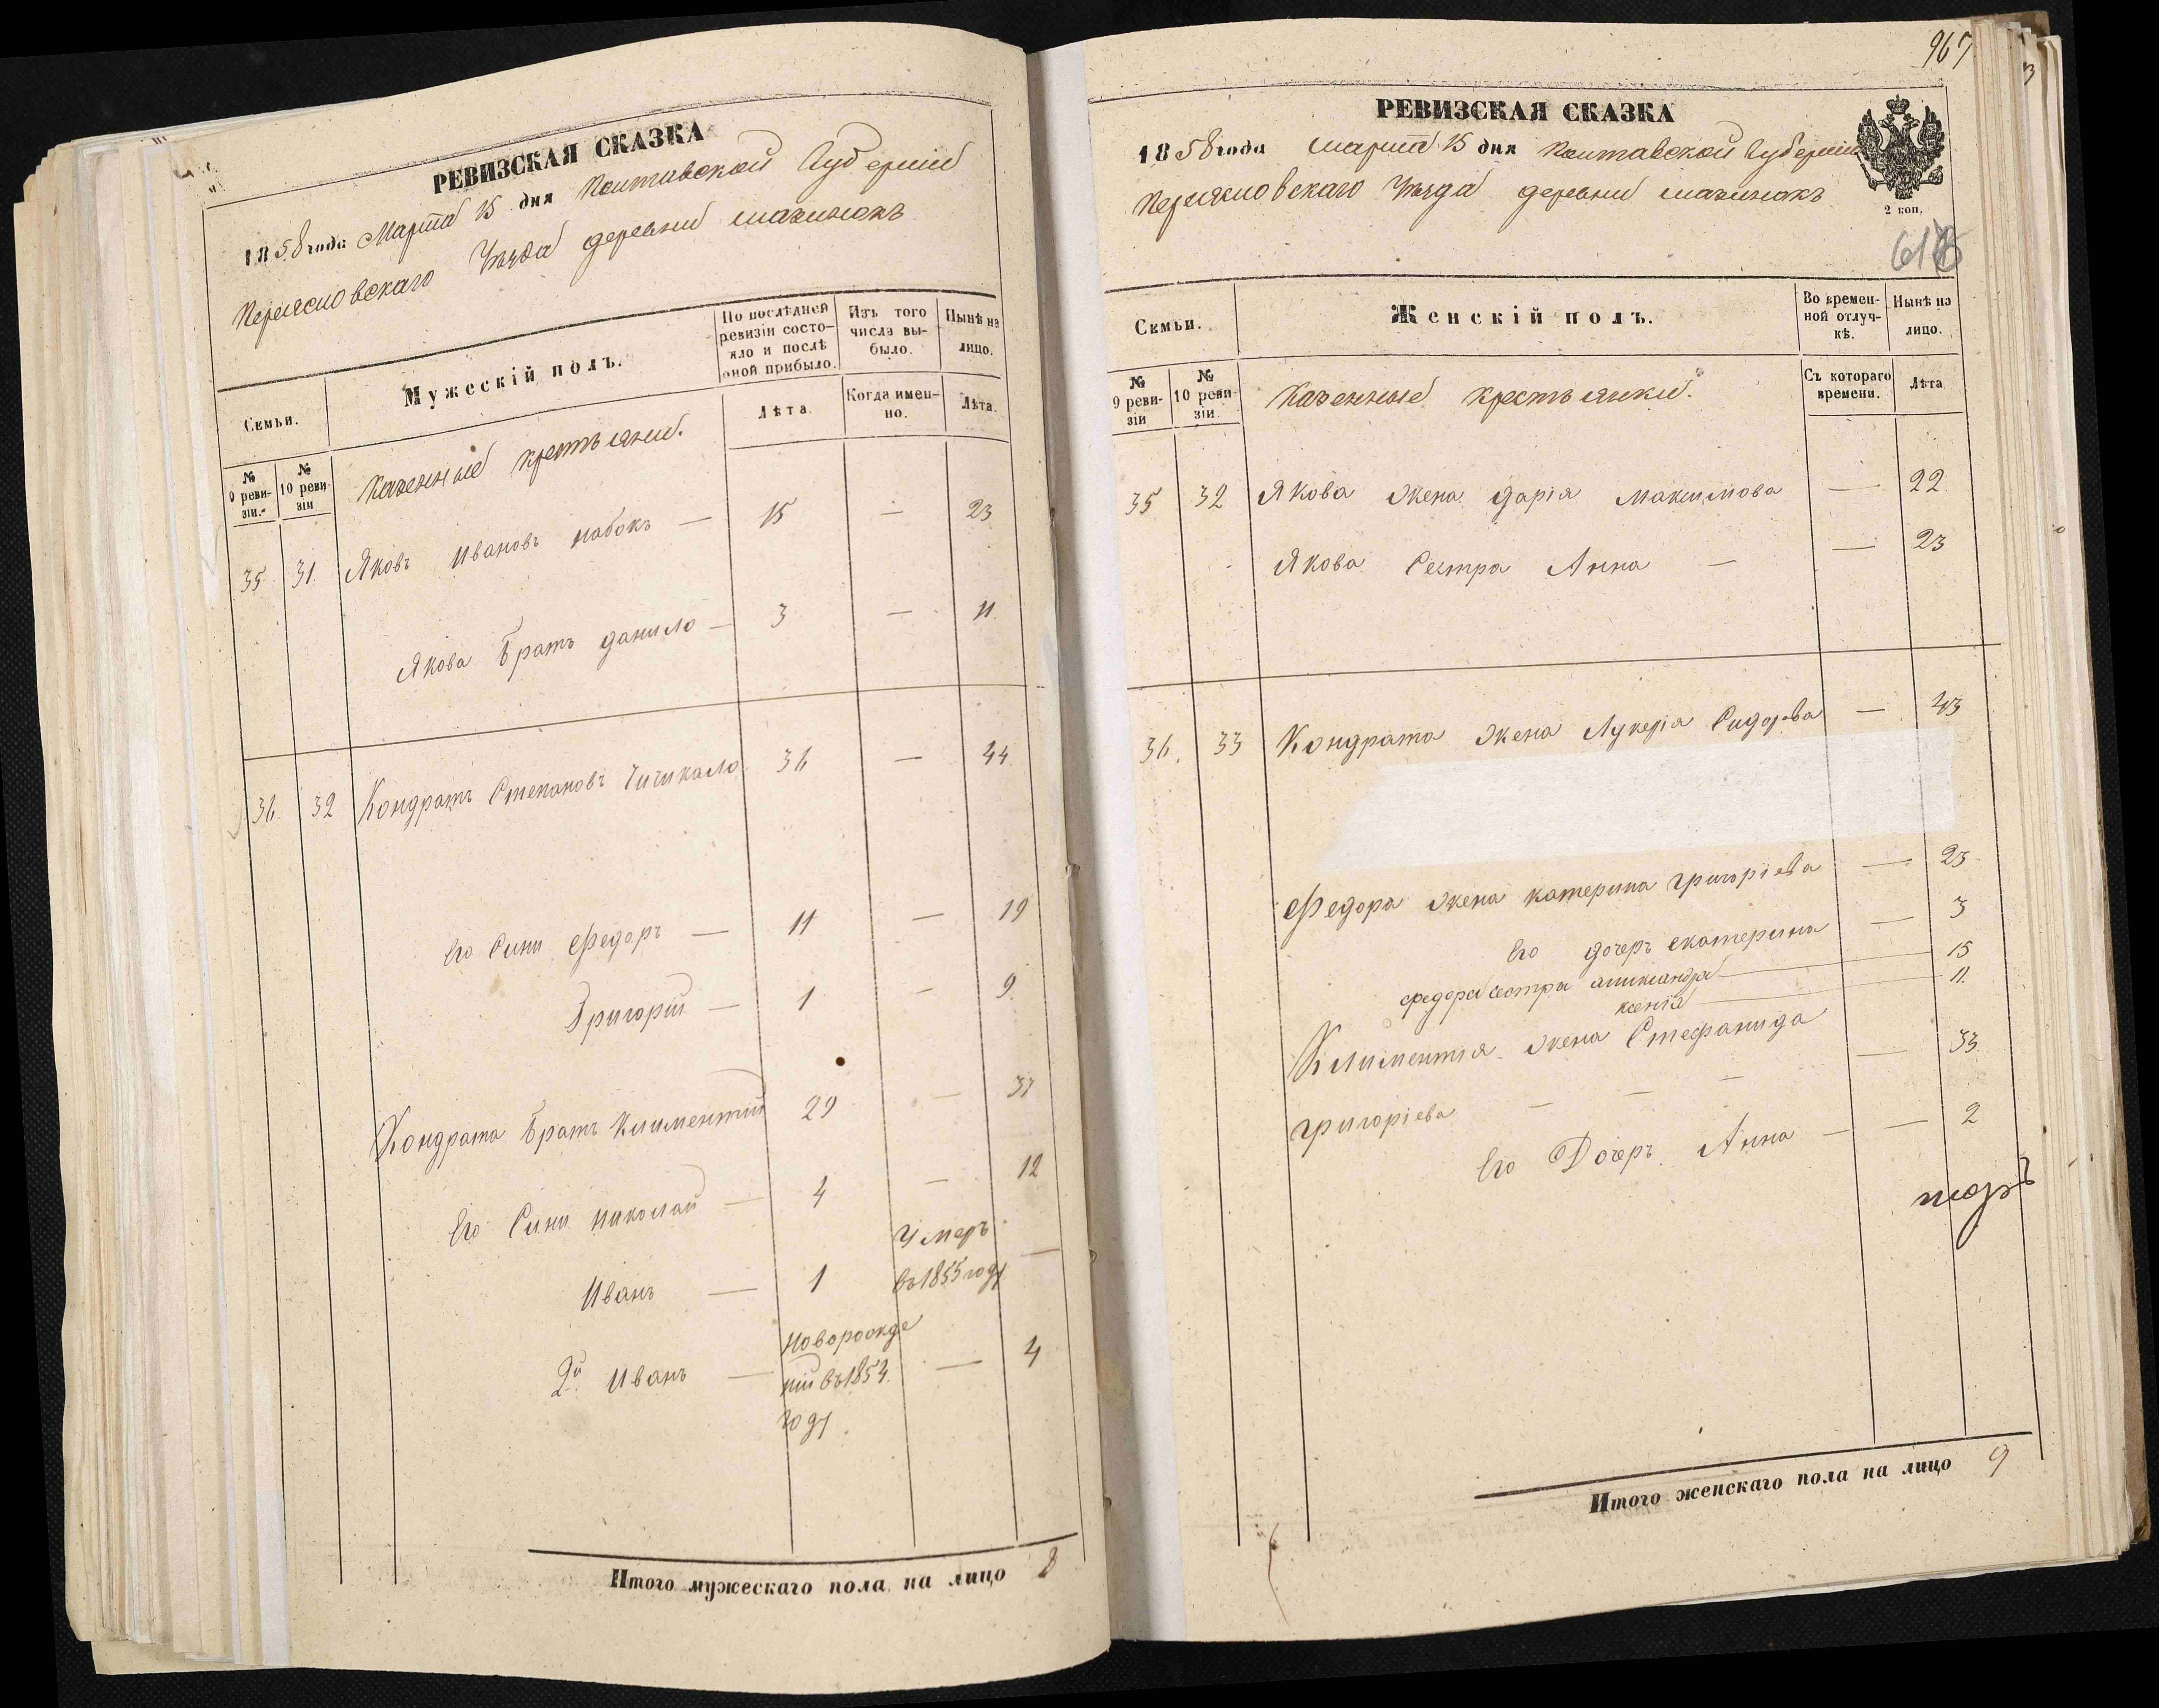 РЕВИЗСКАЯ СКАЗКА
1858 года Марта 15 дня Полтавской Губерніи
Переяславскаго Уѣзда деревни
Семьи.
Мужескій полъ.
По послѣдней ревизіи состояло и послѣ оной прибыло.
Изъ того числа выбыло.
Нынѣ на лицо.
№ 9 ревизіи.
№ 10 ревизіи
Казенные крестьяне.
Лѣта.
Когда именно.
Лѣта.
35 31. Яковъ Ивановъ Набокъ — 15 — 23
Якова Братъ Данило — 3 — 11.
36. 32 Кондратъ Степановъ Чичикало 36 — 44.
Его Сини Федоръ — 11 — 19
Григорій — 1 — 9.
Кондрата Братъ Климентій 29 — 37
Его Сини Николай — 4 — 12
Иванъ — 1 Умеръ въ 1855 году —
2й Иванъ — Новорожде
ній въ 1854. — 4
году.
Итого мужескаго пола на лицо 8
967
РЕВИЗСКАЯ СКАЗКА
1858 года Марта 15 дня Полтавской Губерніи
Переяславскаго Уѣзда деревни
2 коп.
Семьи.
Женскій полъ.
Во временной отлучкѣ.
Нынѣ на лицо.
№ 9 ревизіи
№ 10 ревизіи.
Казенные крестьянки.
Съ котораго времени.
Лѣта
35 32 Якова Жена Дарія Максимова — 22
Якова Сестра Анна — — 23
36. 33 Кондрата Жена Лукерія Сидорова — 43
Федора Жена Катерина Григоріева — 23
Его Дочеръ Екатерина — 3
Федора сестра Александра — 15
Ксенія — 11.
Климентія Жена Стефанида
Григоріева — — — — 33
Его Дочеръ Анна — — 2
Итого женскаго пола на лицо 9